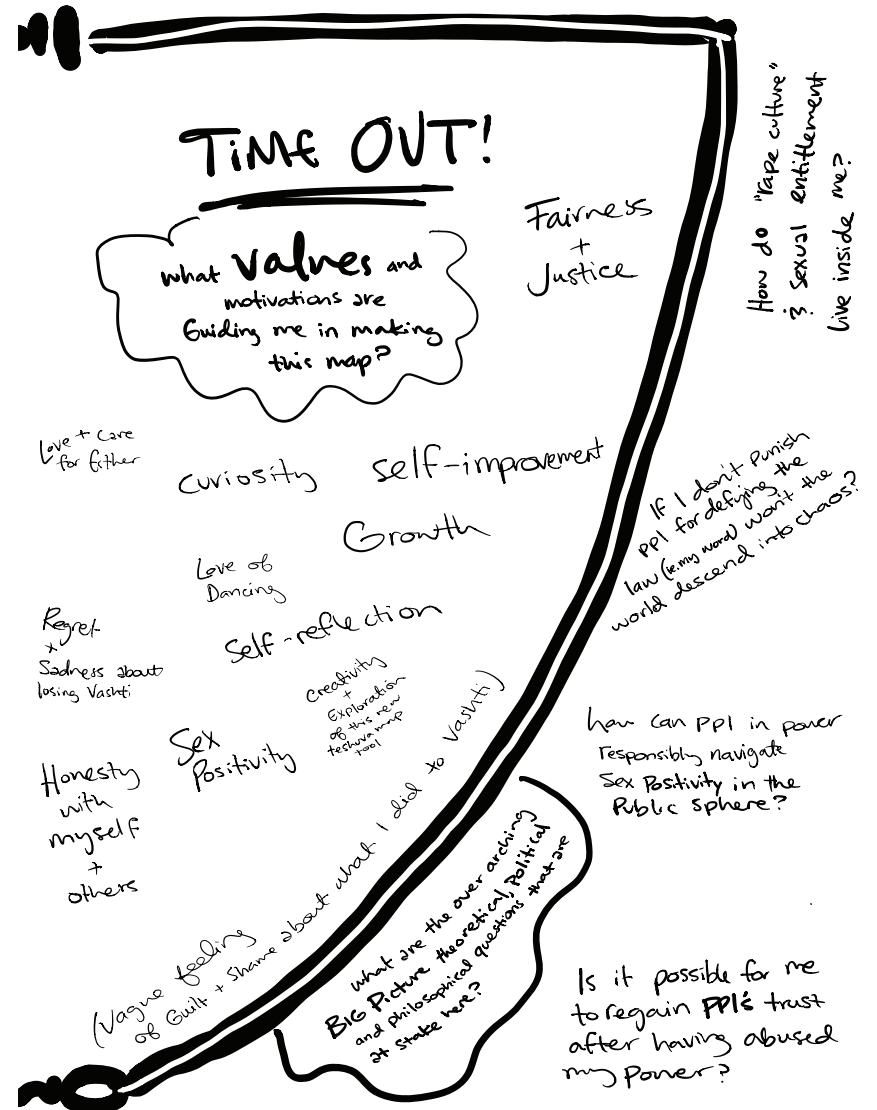 TIME OUT!
what values and
motivations are
Guiding me in making
this map?
Fairness
+
Justice
Love + Care
for Esther
curiosity
self-improvement
Growth
Love of
Dancing
Self-reflection
Regret
+
Sadness about
losing Vashti
Creativity
+
Exploration
of this new
teshuva map
tool
Sex
Positivity
Honesty
with
myself
+
others
(Vague feeling
of Guilt + Shame about what I did to Vashti)
How do "rape culture"
& sexual entitlement
live inside me?
If I don't punish
ppl for defying the
law (ie. my word) won't the
world descend into chaos?
how can ppl in power
responsibly navigate
Sex Positivity in the
Public sphere?
what are the over arching
BIG Picture theoretical, political
and philosophical questions that are
at stake here?
Is it possible for me
to regain PPl's trust
after having abused
my power?